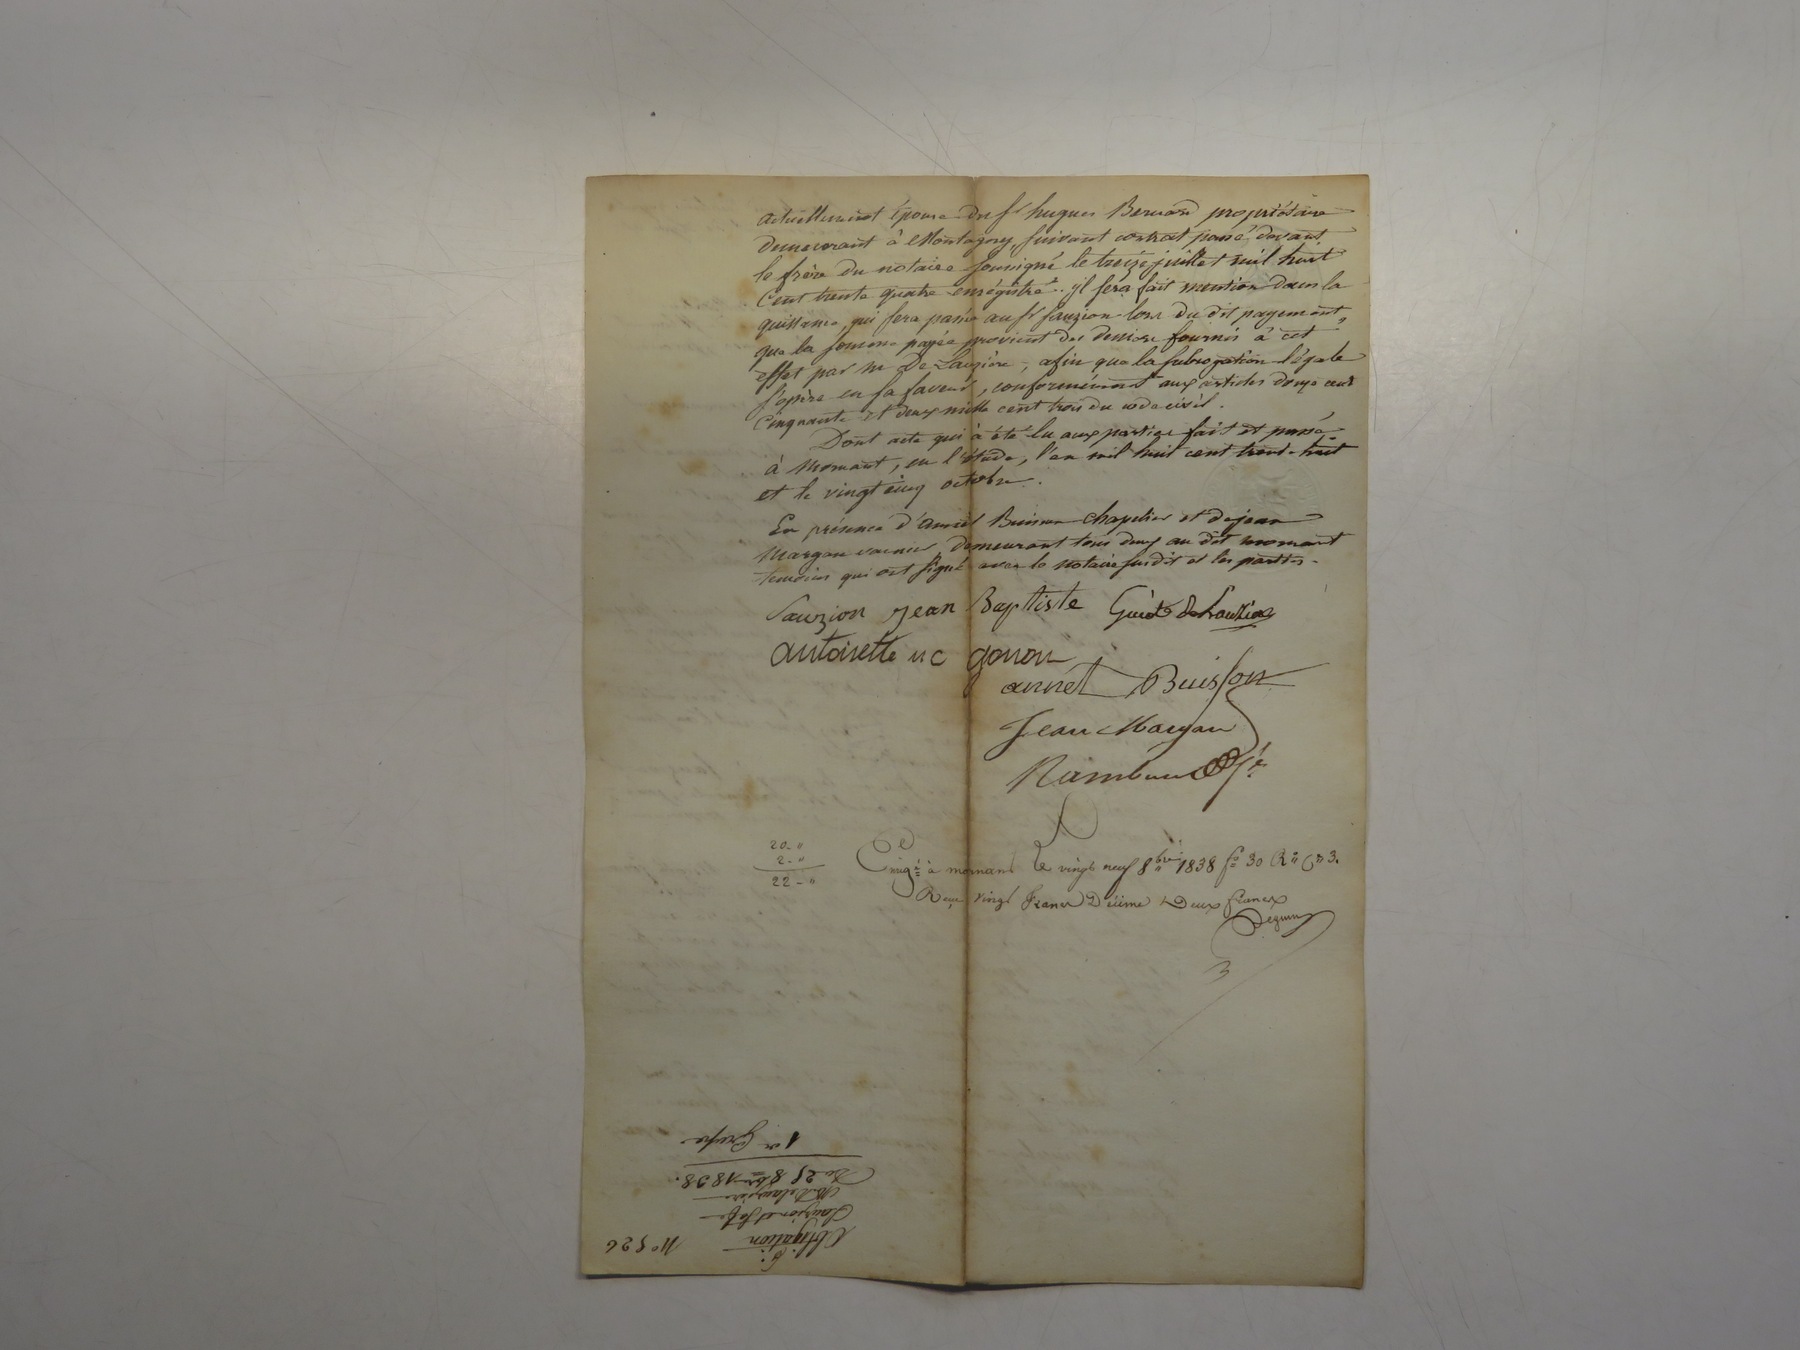 actuellement épouse du sr hugues Bernard propriétaire
demeurant à Montagny, suivant contrat passé devant
le frère du notaire soussigné le treize juillet mil huit
cent trente quatre enrégistré. il sera fait mention dans la
quittance qui sera passée au sr sauzion lors du dit payement,
que la somme payée provient des deniers fournis à cet
effet par mr De Lauzière, afin que la subrogation légale
s'opère en sa faveur, conformément aux articles douze cent
cinquante et deux mille cent trois du code civil.
Dont acte qui à été lu aux parties fait et passé
à Mornant, en l'étude, l'an mil huit cent trent-huit
et le vingt cinq octobre.
En présence d'annet Buisson chapelier et de jean
Margan demeurant tous deux au dit mornant
temoins qui ont signé avec le notaire susdit et les parties.
Sauzion jean Baptiste
antoinette gonon
annet Buisson
Jean Margan
20 - "
2 - "
22 - "
Enregé à mornant le vingt neuf 8bre 1838 fo 30 Ro Cn 3.
Reçu vingt francs Décime Deux francs
1re Grosse
Du 25 8bre 1838.
Sauzion et sa fe
Obligation
No 526